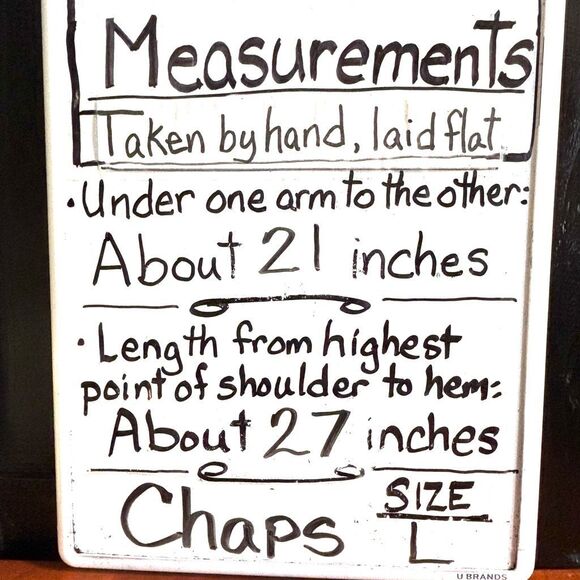 Measurements
Taken by hand, laid flat
• Under one arm to the other:
About 21 inches
• Length from highest
point of shoulder to hem:
About 27 inches
Chaps
SIZE
L
U BRANDS